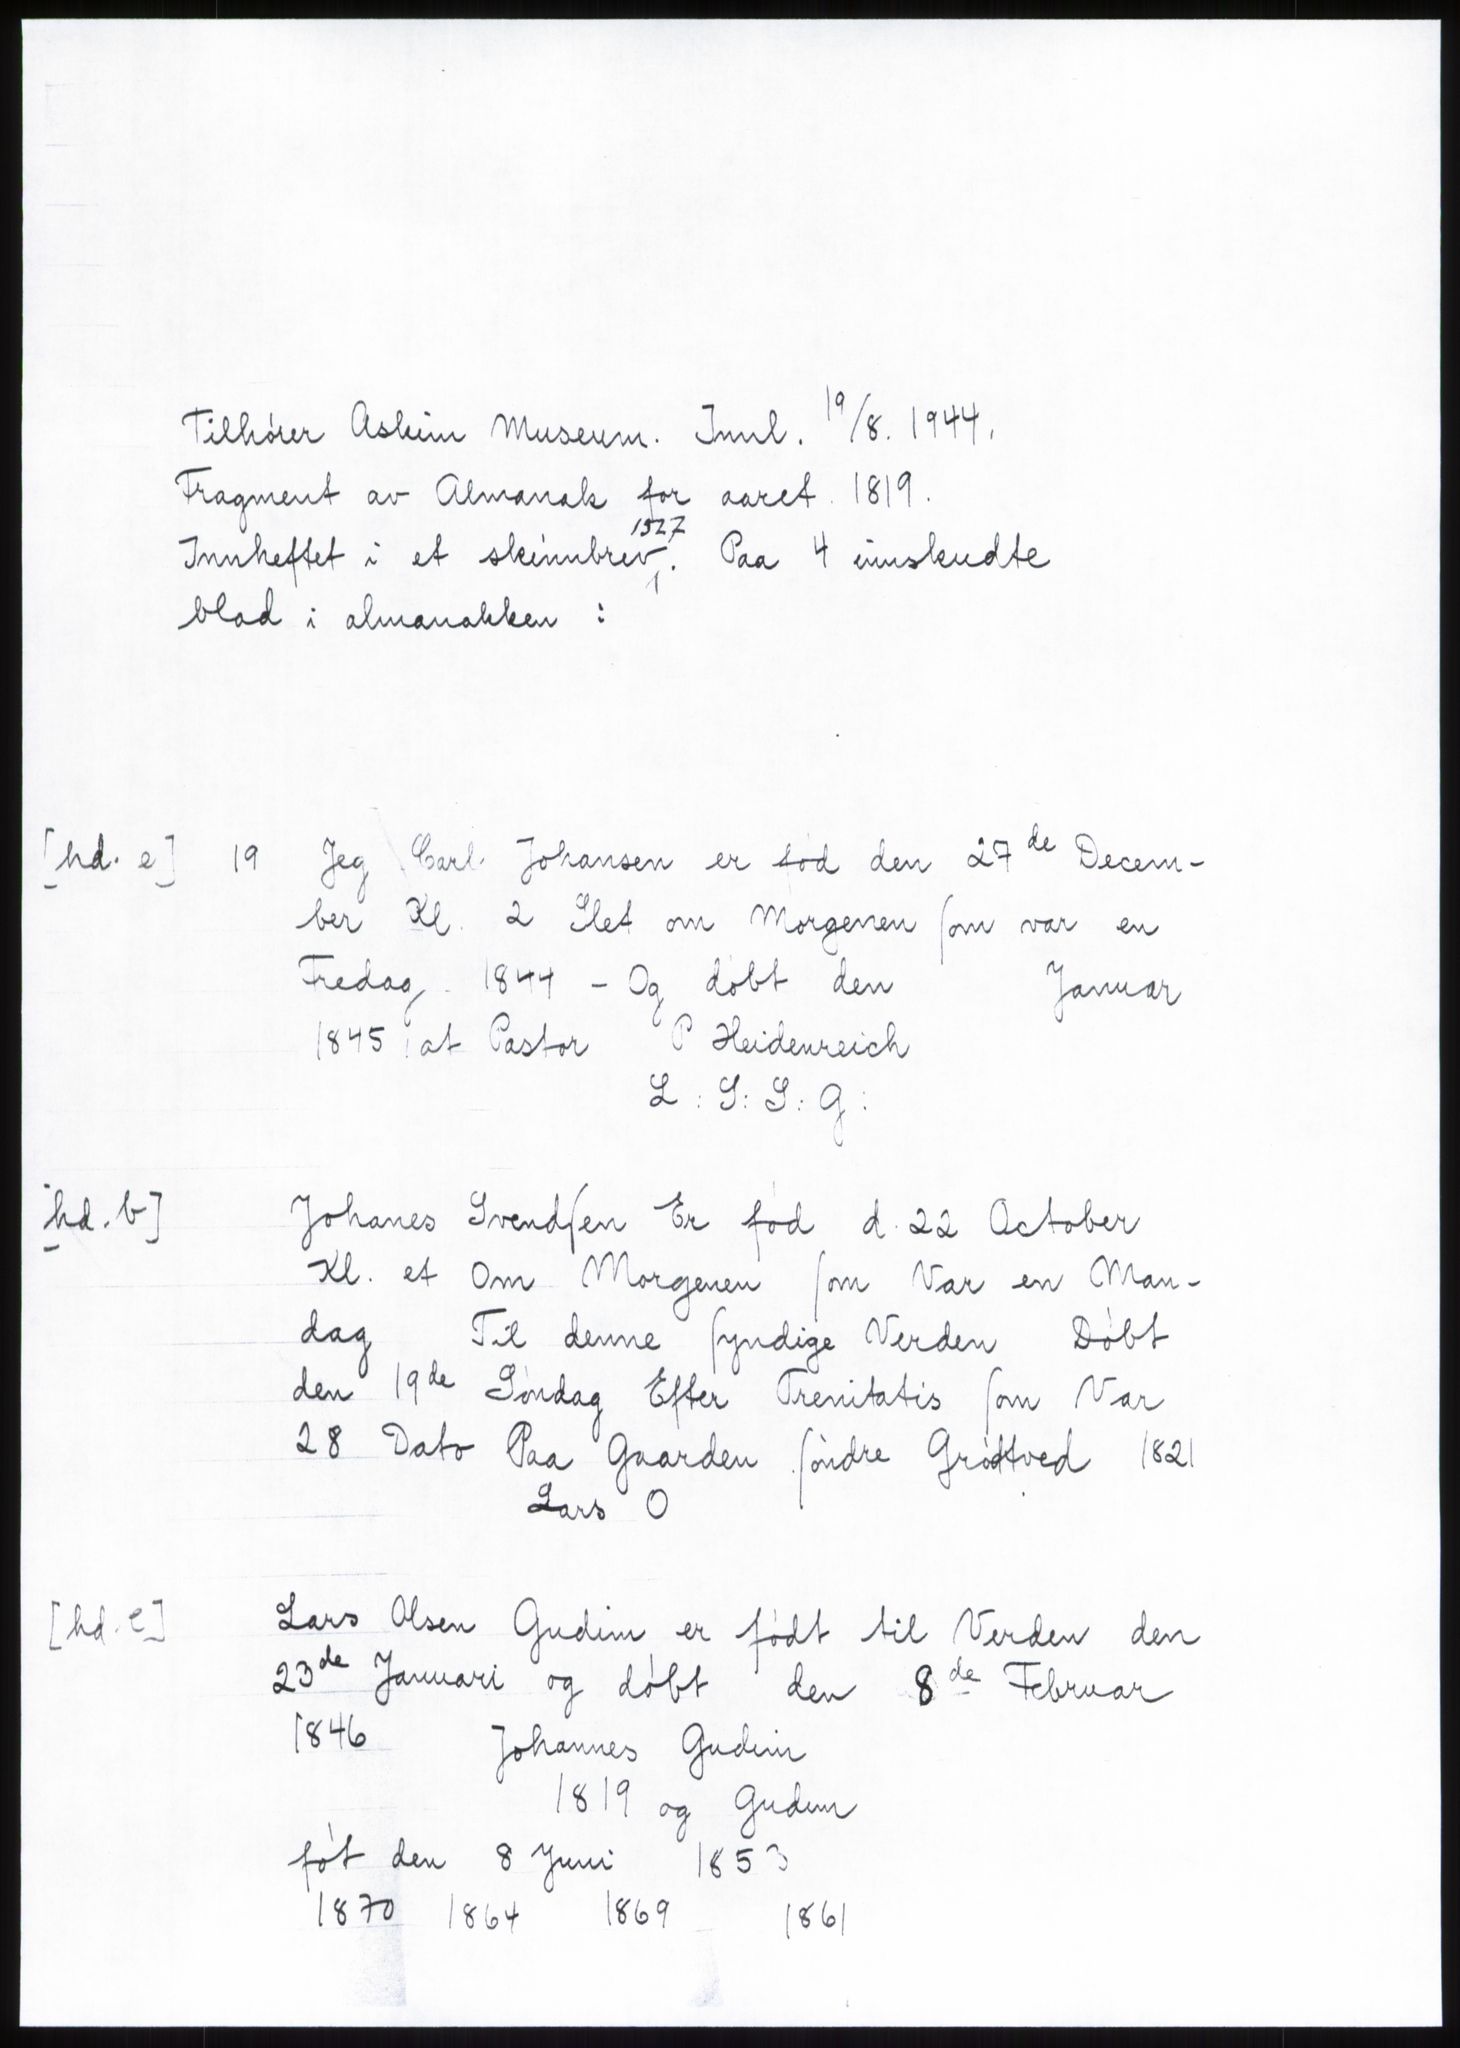 Tilhører Askim Museum. Innl. 19/8. 1944.
Fragment av Almanak for aaret 1819.
Innheftet i et skinnbrev 1527. Paa 4 innskudte
blad i almanakken :
[hd. e] 19 Jeg Carl Johansen er fød den 27de Decem-
ber Kl. 2 Slet om Morgenen som var en
Fredag 1844 - Og døbt den Januar
1845 at Pastor P Heidenreich
L : S : S : G :
[hd. b] Johanes Svendsen Er fød d. 22 October
Kl. et Om Morgenen som Var en Man-
dag Til denne syndige Verden Døbt
den 19de Søndag Efter Trenitatis som Var
28 Dato Paa Gaarden søndre Grøtved 1821
Lars O
[hd. e] Lars Olsen Gudim er født til Verden den
23de Januari og døbt den 8de Februar
1846 Johannes Gudim
1819 og Gudim
føt den 8 Juni 1853
1870 1864 1869 1861